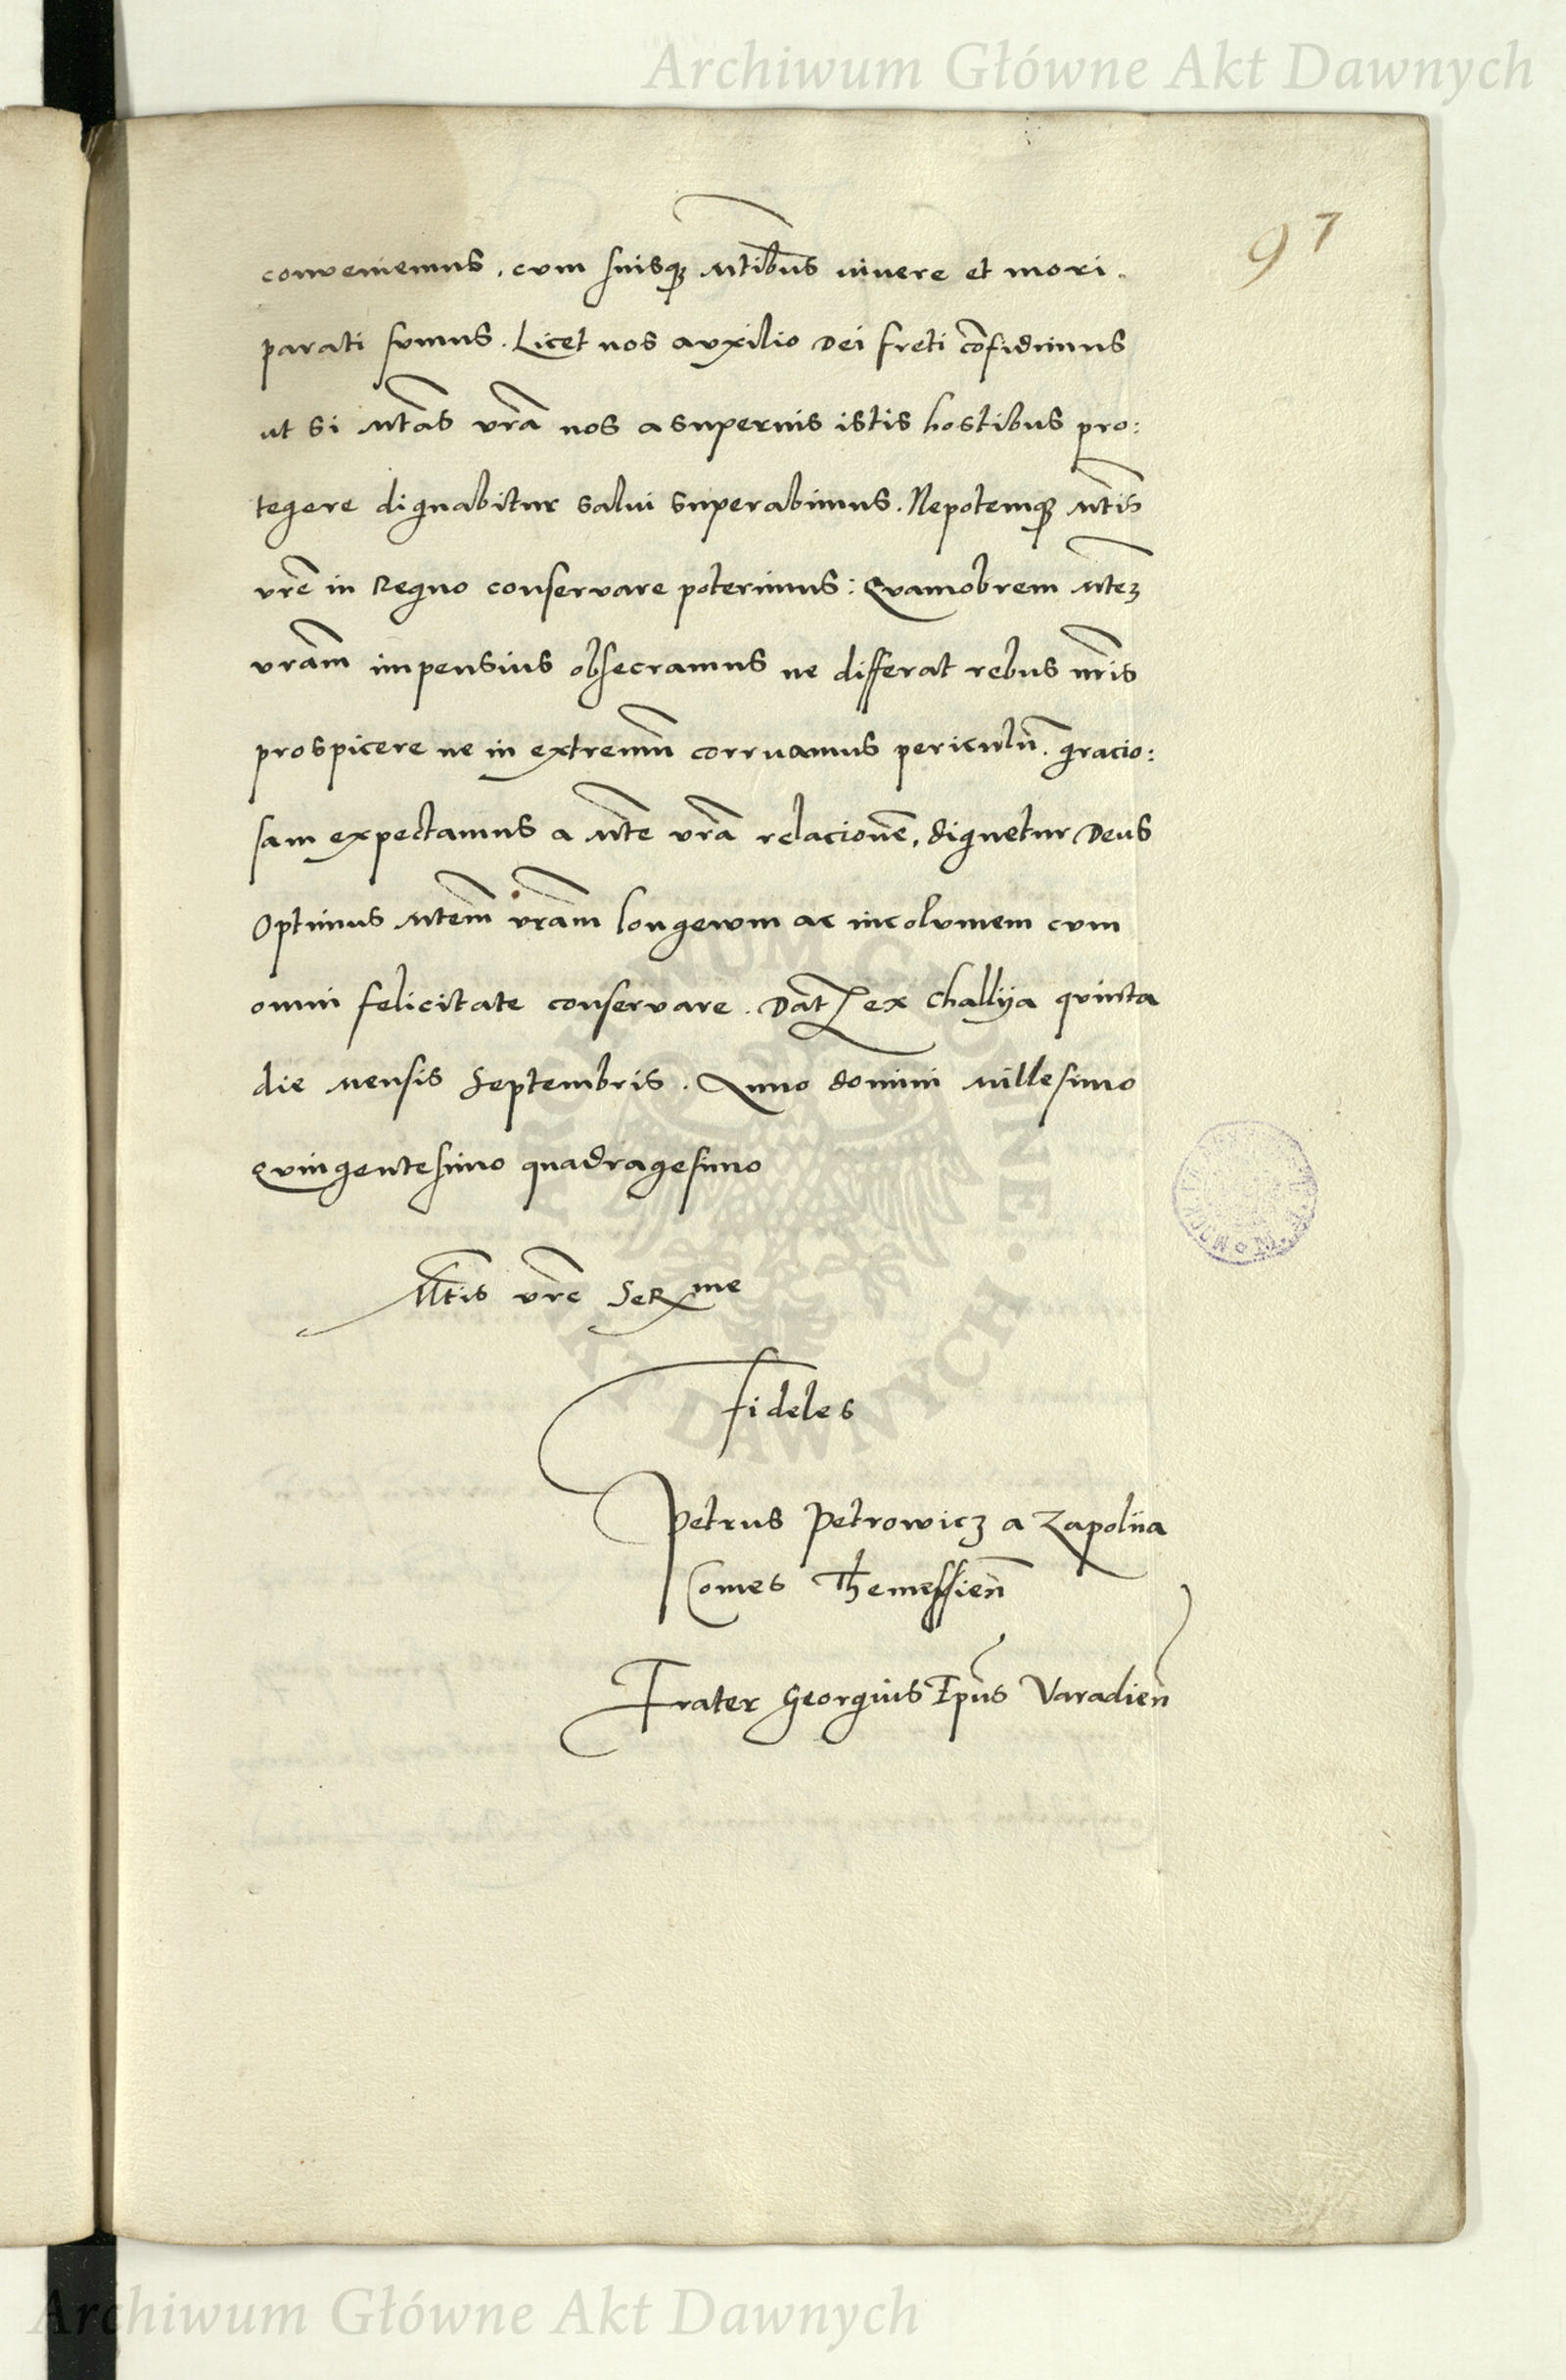 Archiwum Główne Akt Dawnych
97
conveniemus, cum suisqꝫ Mtibus vivere et mori
parati sumus. Licet nos auxilio Dei freti cōfidimus
ut si Mtas vra nos a supernis istis hostibus pro:
tegere dignabitur salvi superabimus. Nepotemqꝫ Mtis
vre in Regno conservare poterimus: Quamobrem Mteꝫ
vram impensius obsecramus ne differat rebus nris
prospicere ne in extremū corruamus periculū. gracio:
sam expectamus a Mte vra relacionē, dignetur Deus
Optimus Mtem vram longevum ac incolumem cum
omni felicitate conservare. Dat ex Challya quinta
die mensis Septembris. Anno domini Millesimo
quingentesimo quadragesimo
Mtis vre Serme
Fideles
Petrus Petrowicz a Zapolia
Comes Themessien̄
Frater Georgius Epus Varadien̄
ARCHIWUM GŁÓWNE AKT DAWNYCH
Archiwum Główne Akt Dawnych